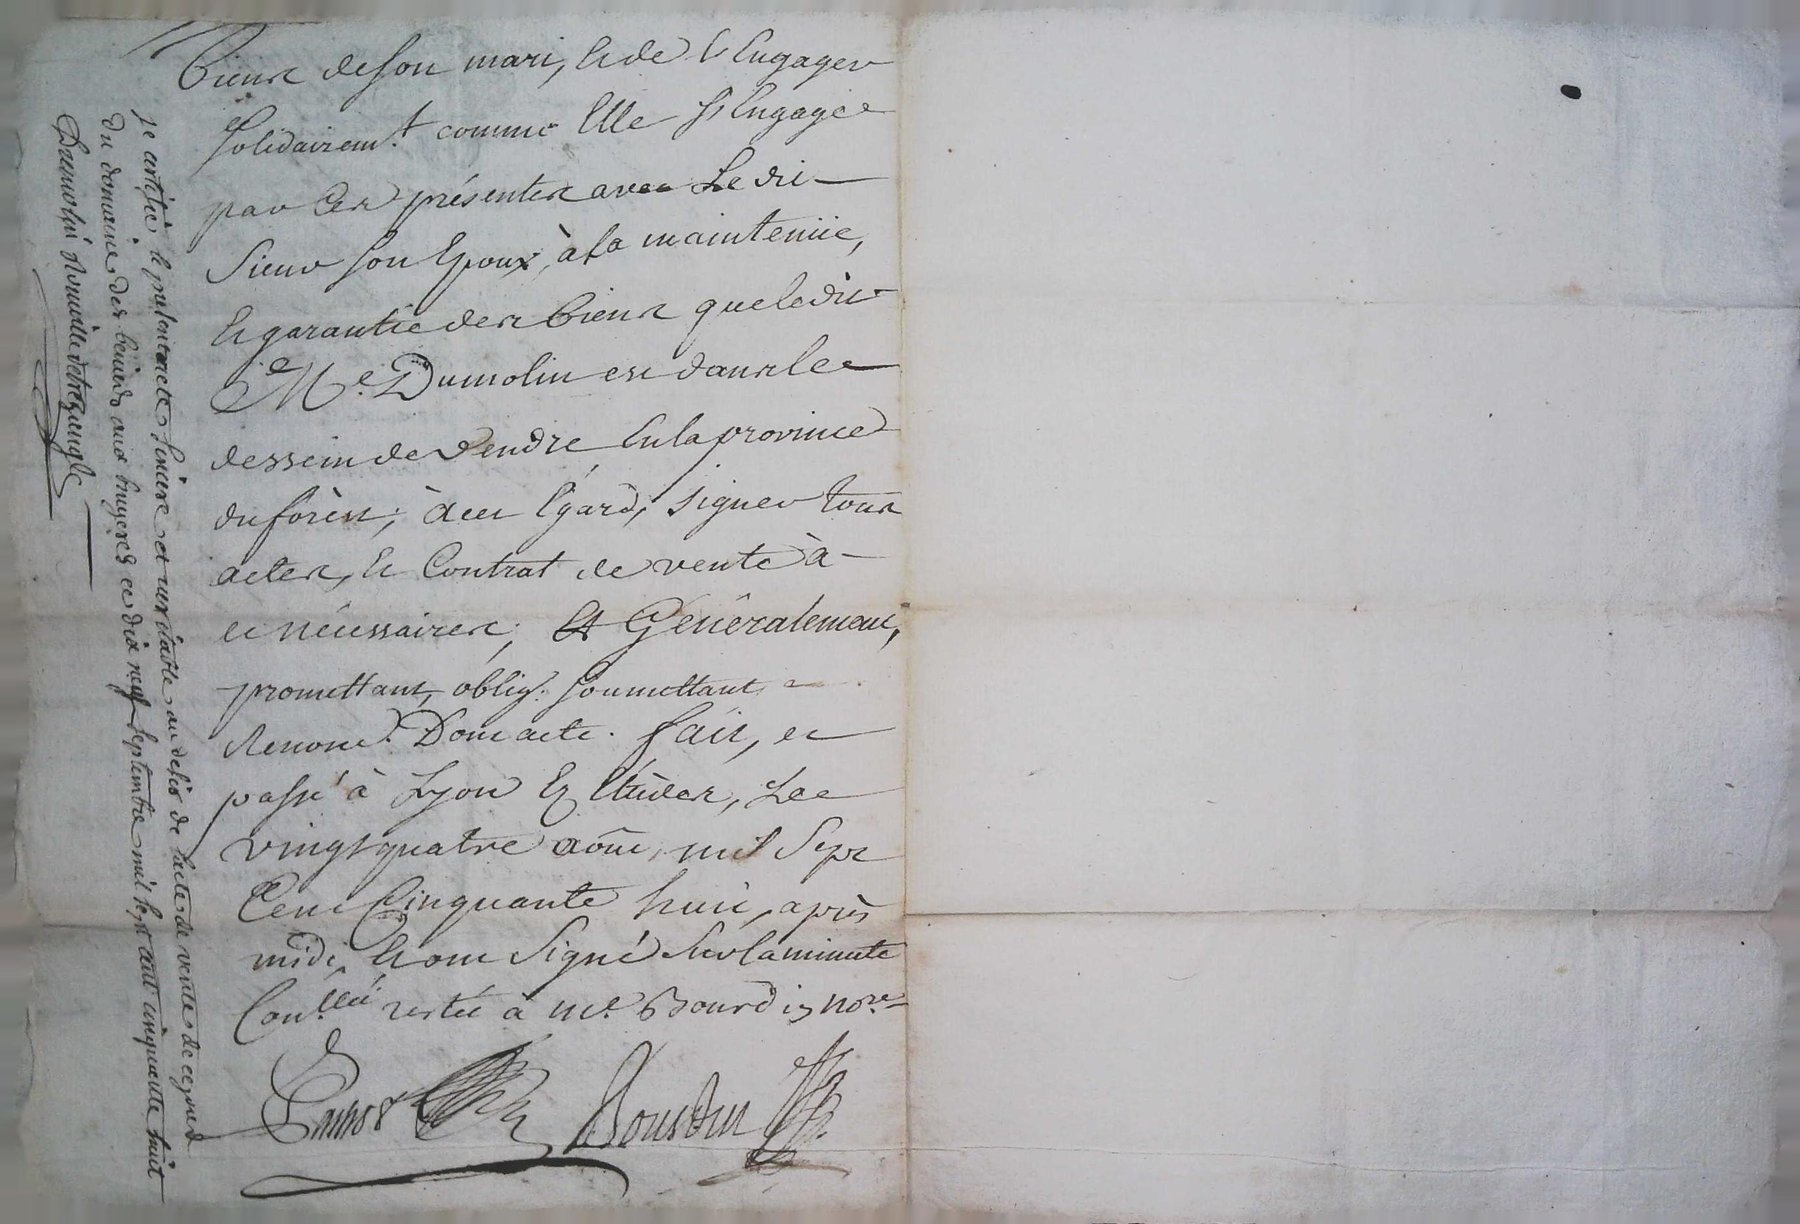 biens de son mari, et de s'engager
solidairemt. comme elle s'engage
par ces présentes avec Le dit
sieur son Epoux, à la maintenüe,
et garantie des biens que ledit
Me. Dumolin est dans le
dessein de vendre En la province
du forêst; à cet Egard, signer tous
actes, et Contrat de vente à
ce nécessaires; Et Généralement,
promettant, oblig. soumettant
Renonc. Dont acte. fait, et
passé à Lyon Ez Etudes, Le
vingt quatre août, mil sept
Cent Cinquante huit, après
midi, et ont signé sur la minute
Con.llée restée à me. Bourdin nore.
Bourdin
je certifie le présent acte sincere et véritable au désir de l'acte de vente de ce jourd
du domaine des beaux aux bruyeres ce dix neuf septembre mil sept cent cinquante huit